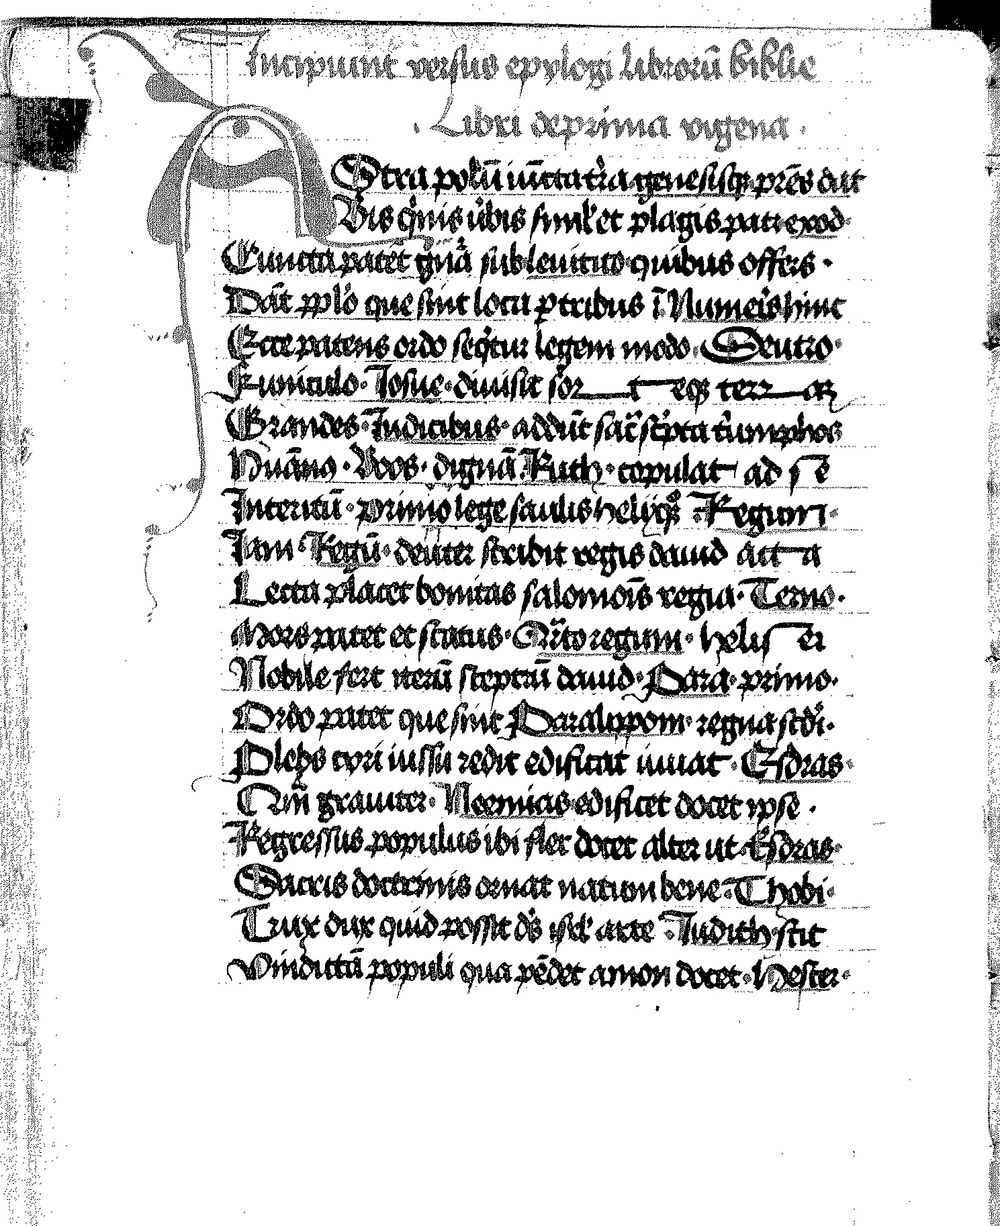 Incipiunt versus epylogi librorū biblie
Libri de prima vigena
AStra polū iūcta t̃ra genesisq; prēs dat
Bis q̃nis ũbis simł et plagis pati exod
Cuncta patēt gn̄a sub levitico quibus offers
Dāt pplo que sint loca ptribus ī Numeris hinc
Ecce patens ordo seq̃tur legem modo Deutro
Funiculo Iosue divisit sor t eqs terr as
Grandes Iudicibus addūt sac̄ sc̃pta t̃umphos
Boos dignā Ruth copulat ad s e
Interitū primo lege saulis helyq; Regum
Iam Regū deuter scribit regis david act a
Lecta placet bonitas salomoīs regia Terno
Mors patet et status Qrto regum helis ei
Nobile fert iterū sceptrū david Para primo
Ordo patet que sint Paralippom regna scdi
Plebs cyri iussu redit edificat iuvat Esdras
graviter Neemias edificet docet ipse
Regressus populus ibi flet docet alter ut Esdras
Sacris doctrinis ornat natum bene Thobi
Trux dux quid possit ds̄ isrl arte Iudith scit
Vindictā populi qua pēdet amon docet Hester